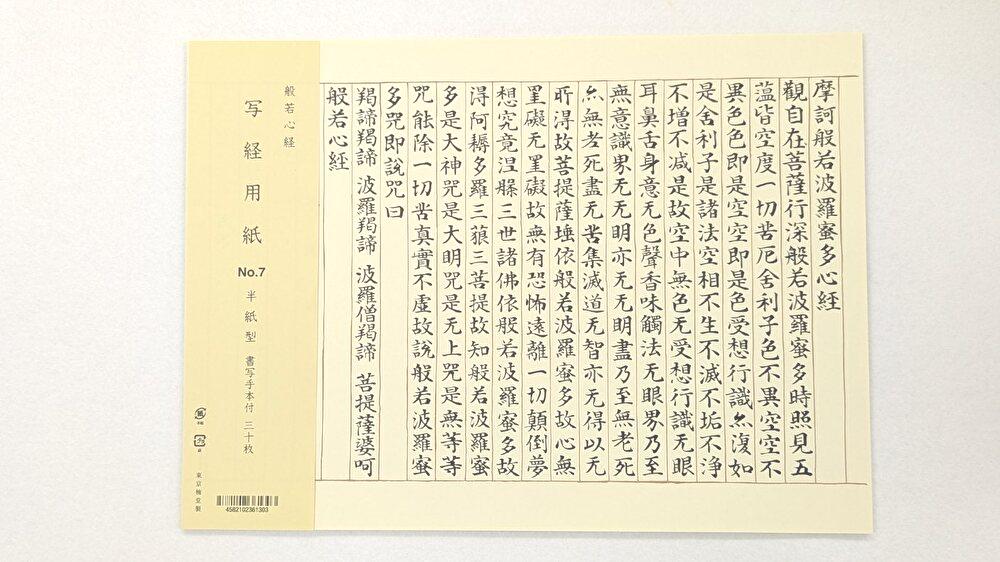 摩訶般若波羅蜜多心經
觀自在菩薩行深般若波羅蜜多時照見五
蕰皆空度一切苦厄舍利子色不異空空不
異色色即是空空即是色受想行識亦復如
是舍利子是諸法空相不生不滅不垢不淨
不增不減是故空中無色无受想行識无眼
耳鼻舌身意无色聲香味觸法无眼界乃至
無意識界无无明亦无无明盡乃至無老死
亦無老死盡无苦集滅道无智亦无得以无
所得故菩提薩埵依般若波羅蜜多故心無
罣礙无罣礙故無有恐怖遠離一切顛倒夢
想究竟涅槃三世諸佛依般若波羅蜜多故
得阿耨多羅三藐三菩提故知般若波羅蜜
多是大神咒是大明咒是无上咒是無等等
咒能除一切苦真實不虛故說般若波羅蜜
多咒即說咒曰
羯諦羯諦 波羅羯諦 波羅僧羯諦 菩提薩婆呵
般若心経
般若心経
写経用紙 No.7 半紙型 書写手本付 三十枚
4582102361303